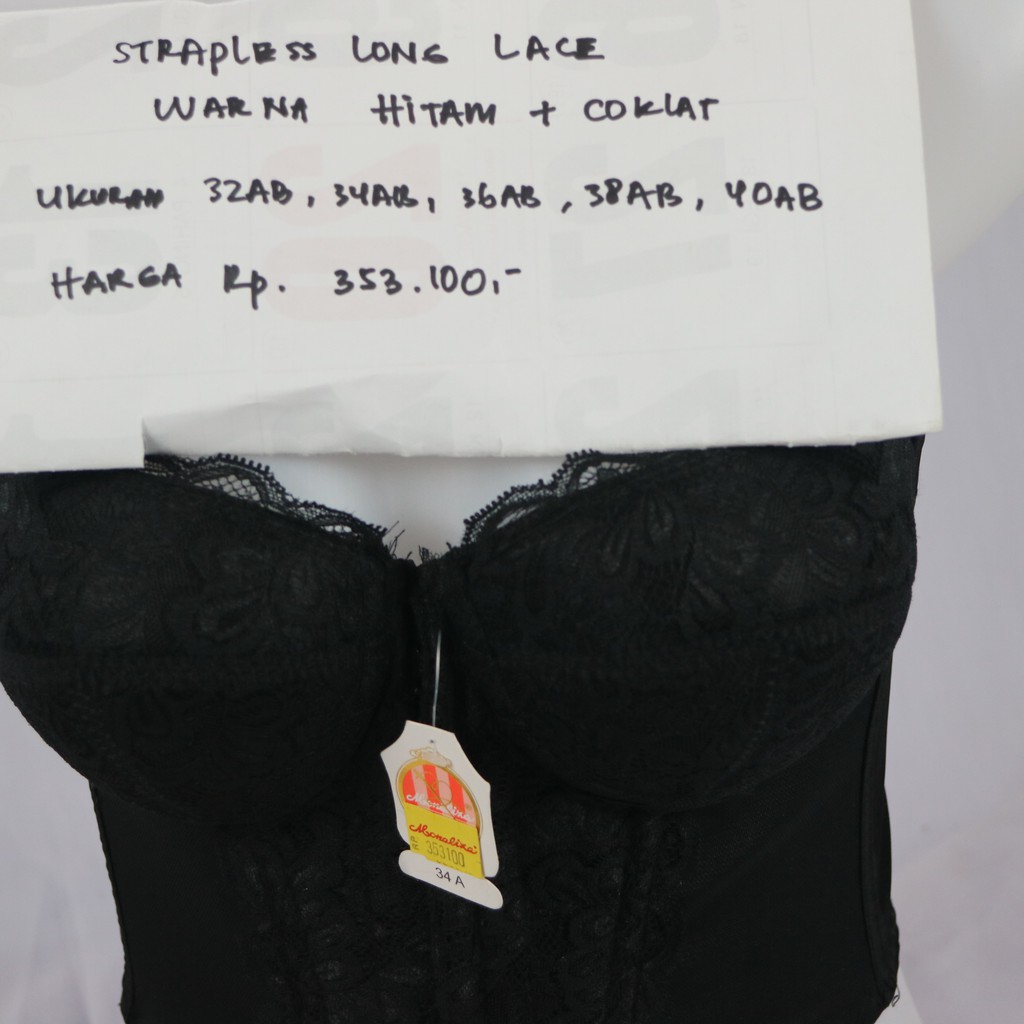 STRAPLESS LONG LACE
WARNA HITAM + COKLAT
UKURAN 32AB, 34AB, 36AB, 38AB, 40AB
HARGA Rp. 353.100,-
Monalixa
Monalixa
353100
34 A